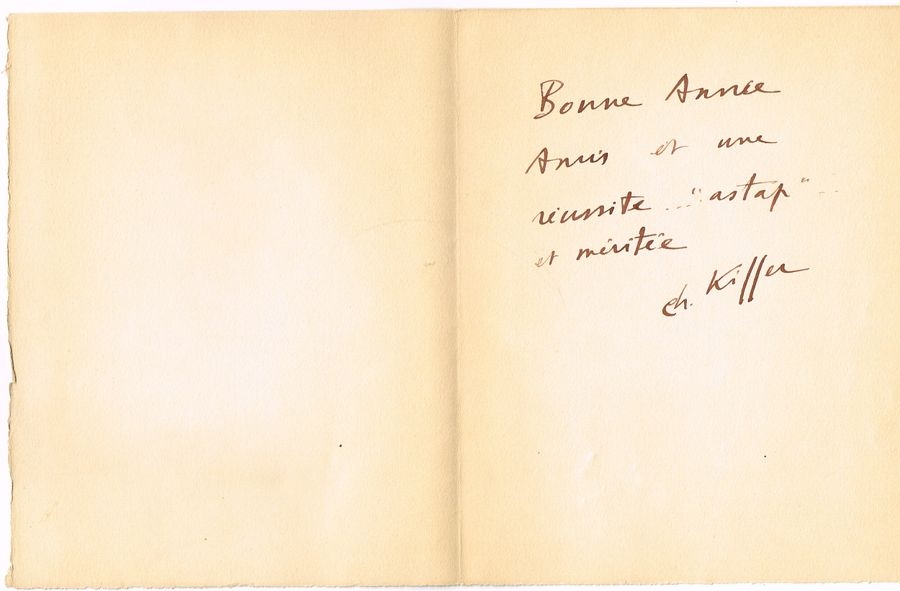 Bonne Année
Amis et une
réussite "astap"
et méritée
ch. Kiffer